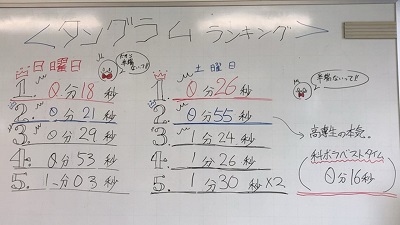 ＜タングラム ランキング＞
日曜日
1. 0分18秒
2. 0分21秒
3. 0分29秒
4. 0分53秒
5. 1分03秒
土曜日
1. 0分26秒
2. 0分55秒
3. 1分24秒
4. 1分26秒
5. 1分30秒×2
高専生の本気。
科ボラベストタイム
(0分16秒)